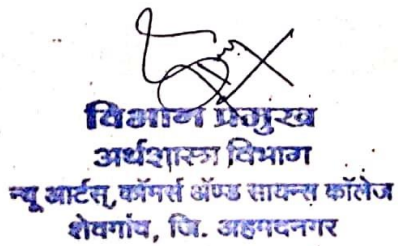 विभाग प्रमुख
अर्थशास्त्र विभाग
न्यू आर्टस्, कॉमर्स ॲण्ड सायन्स कॉलेज
शेवगांव, जि. अहमदनगर